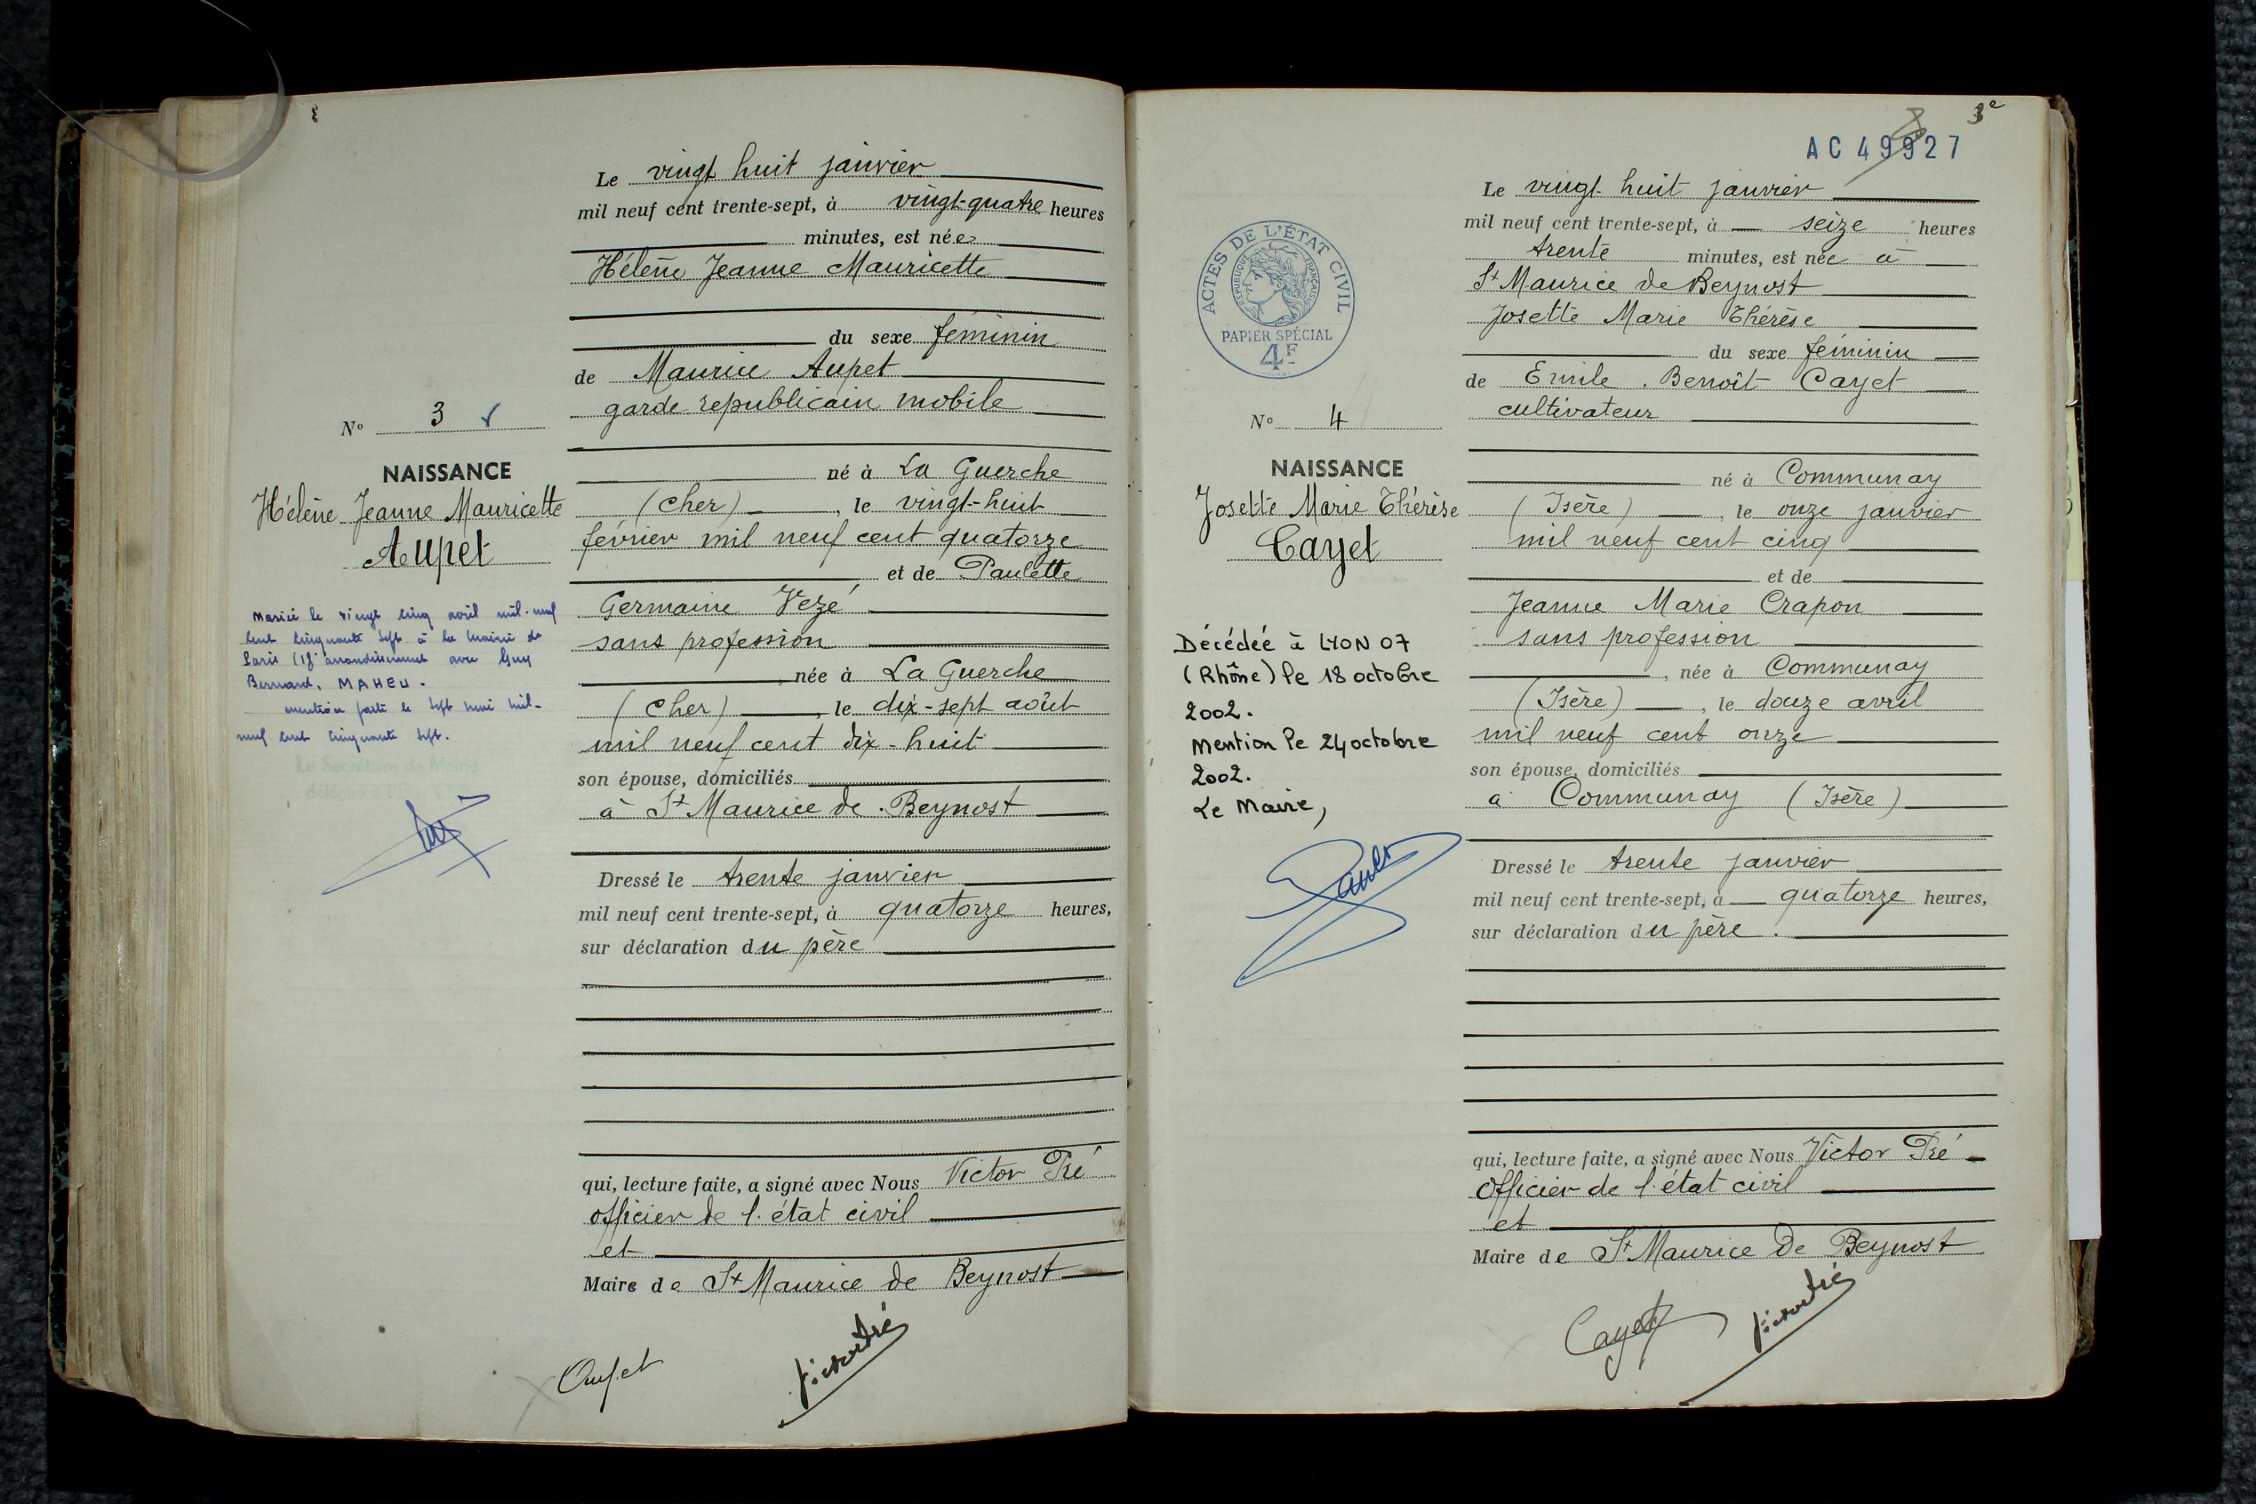 Le vingt huit janvier
mil neuf cent trente-sept, à vingt-quatre heures
minutes, est née
Hélène Jeanne Mauricette
du sexe féminin
de Maurice Aupet
garde républicain mobile
né à La Guerche
(Cher), le vingt-huit
février mil neuf cent quatorze
et de Paulette
Germaine Vezé
sans profession
née à La Guerche
(Cher), le dix-sept août
mil neuf cent dix-huit
son épouse, domiciliés
à St Maurice de Beynost
Dressé le trente janvier
mil neuf cent trente-sept, à quatorze heures,
sur déclaration du père
qui, lecture faite, a signé avec Nous Victor Pré
officier de l'état civil
et
Maire de St Maurice de Beynost
Aupet
Victor Pré
No 3
NAISSANCE
Hélène Jeanne Mauricette
Aupet
Marié le vingt cinq avril mil-neuf
cent cinquante sept à la mairie de
Paris arrondissement avec Guy
Bernard, MAHEU.
mention faite le sept mai mil-
neuf cent cinquante sept.
Le Secrétaire de Mairie
3e
AC 49927
ACTES DE L'ÉTAT CIVIL
RÉPUBLIQUE FRANÇAISE
PAPIER SPÉCIAL
4F
No 4
NAISSANCE
Josette Marie Thérèse
Cayet
Décédée à LYON 07
(Rhône) le 18 octobre
2002.
Mention le 24 octobre
2002.
Le Maire,
Le vingt-huit janvier
mil neuf cent trente-sept, à seize heures
trente minutes, est née à
St Maurice de Beynost
Josette Marie Thérèse
du sexe féminin
de Emile. Benoît Cayet
cultivateur
né à Communay
(Isère), le onze janvier
mil neuf cent cinq
et de
Jeanne Marie Crapon
sans profession
, née à Communay
(Isère), le douze avril
mil neuf cent onze
son épouse, domiciliés
à Communay (Isère)
Dressé le trente janvier
mil neuf cent trente-sept, à quatorze heures,
sur déclaration du père.
qui, lecture faite, a signé avec Nous Victor Pré
officier de l'état civil
et
Maire de St Maurice de Beynost
Cayet
Victor Pré